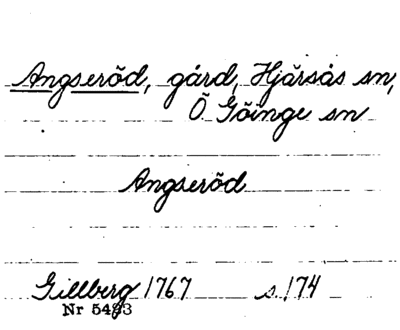 Angseröd, gård, Hjärsås sn,
Ö Göinge sn
Angseröd
Gillberg 1767 s. 174
Nr 5493